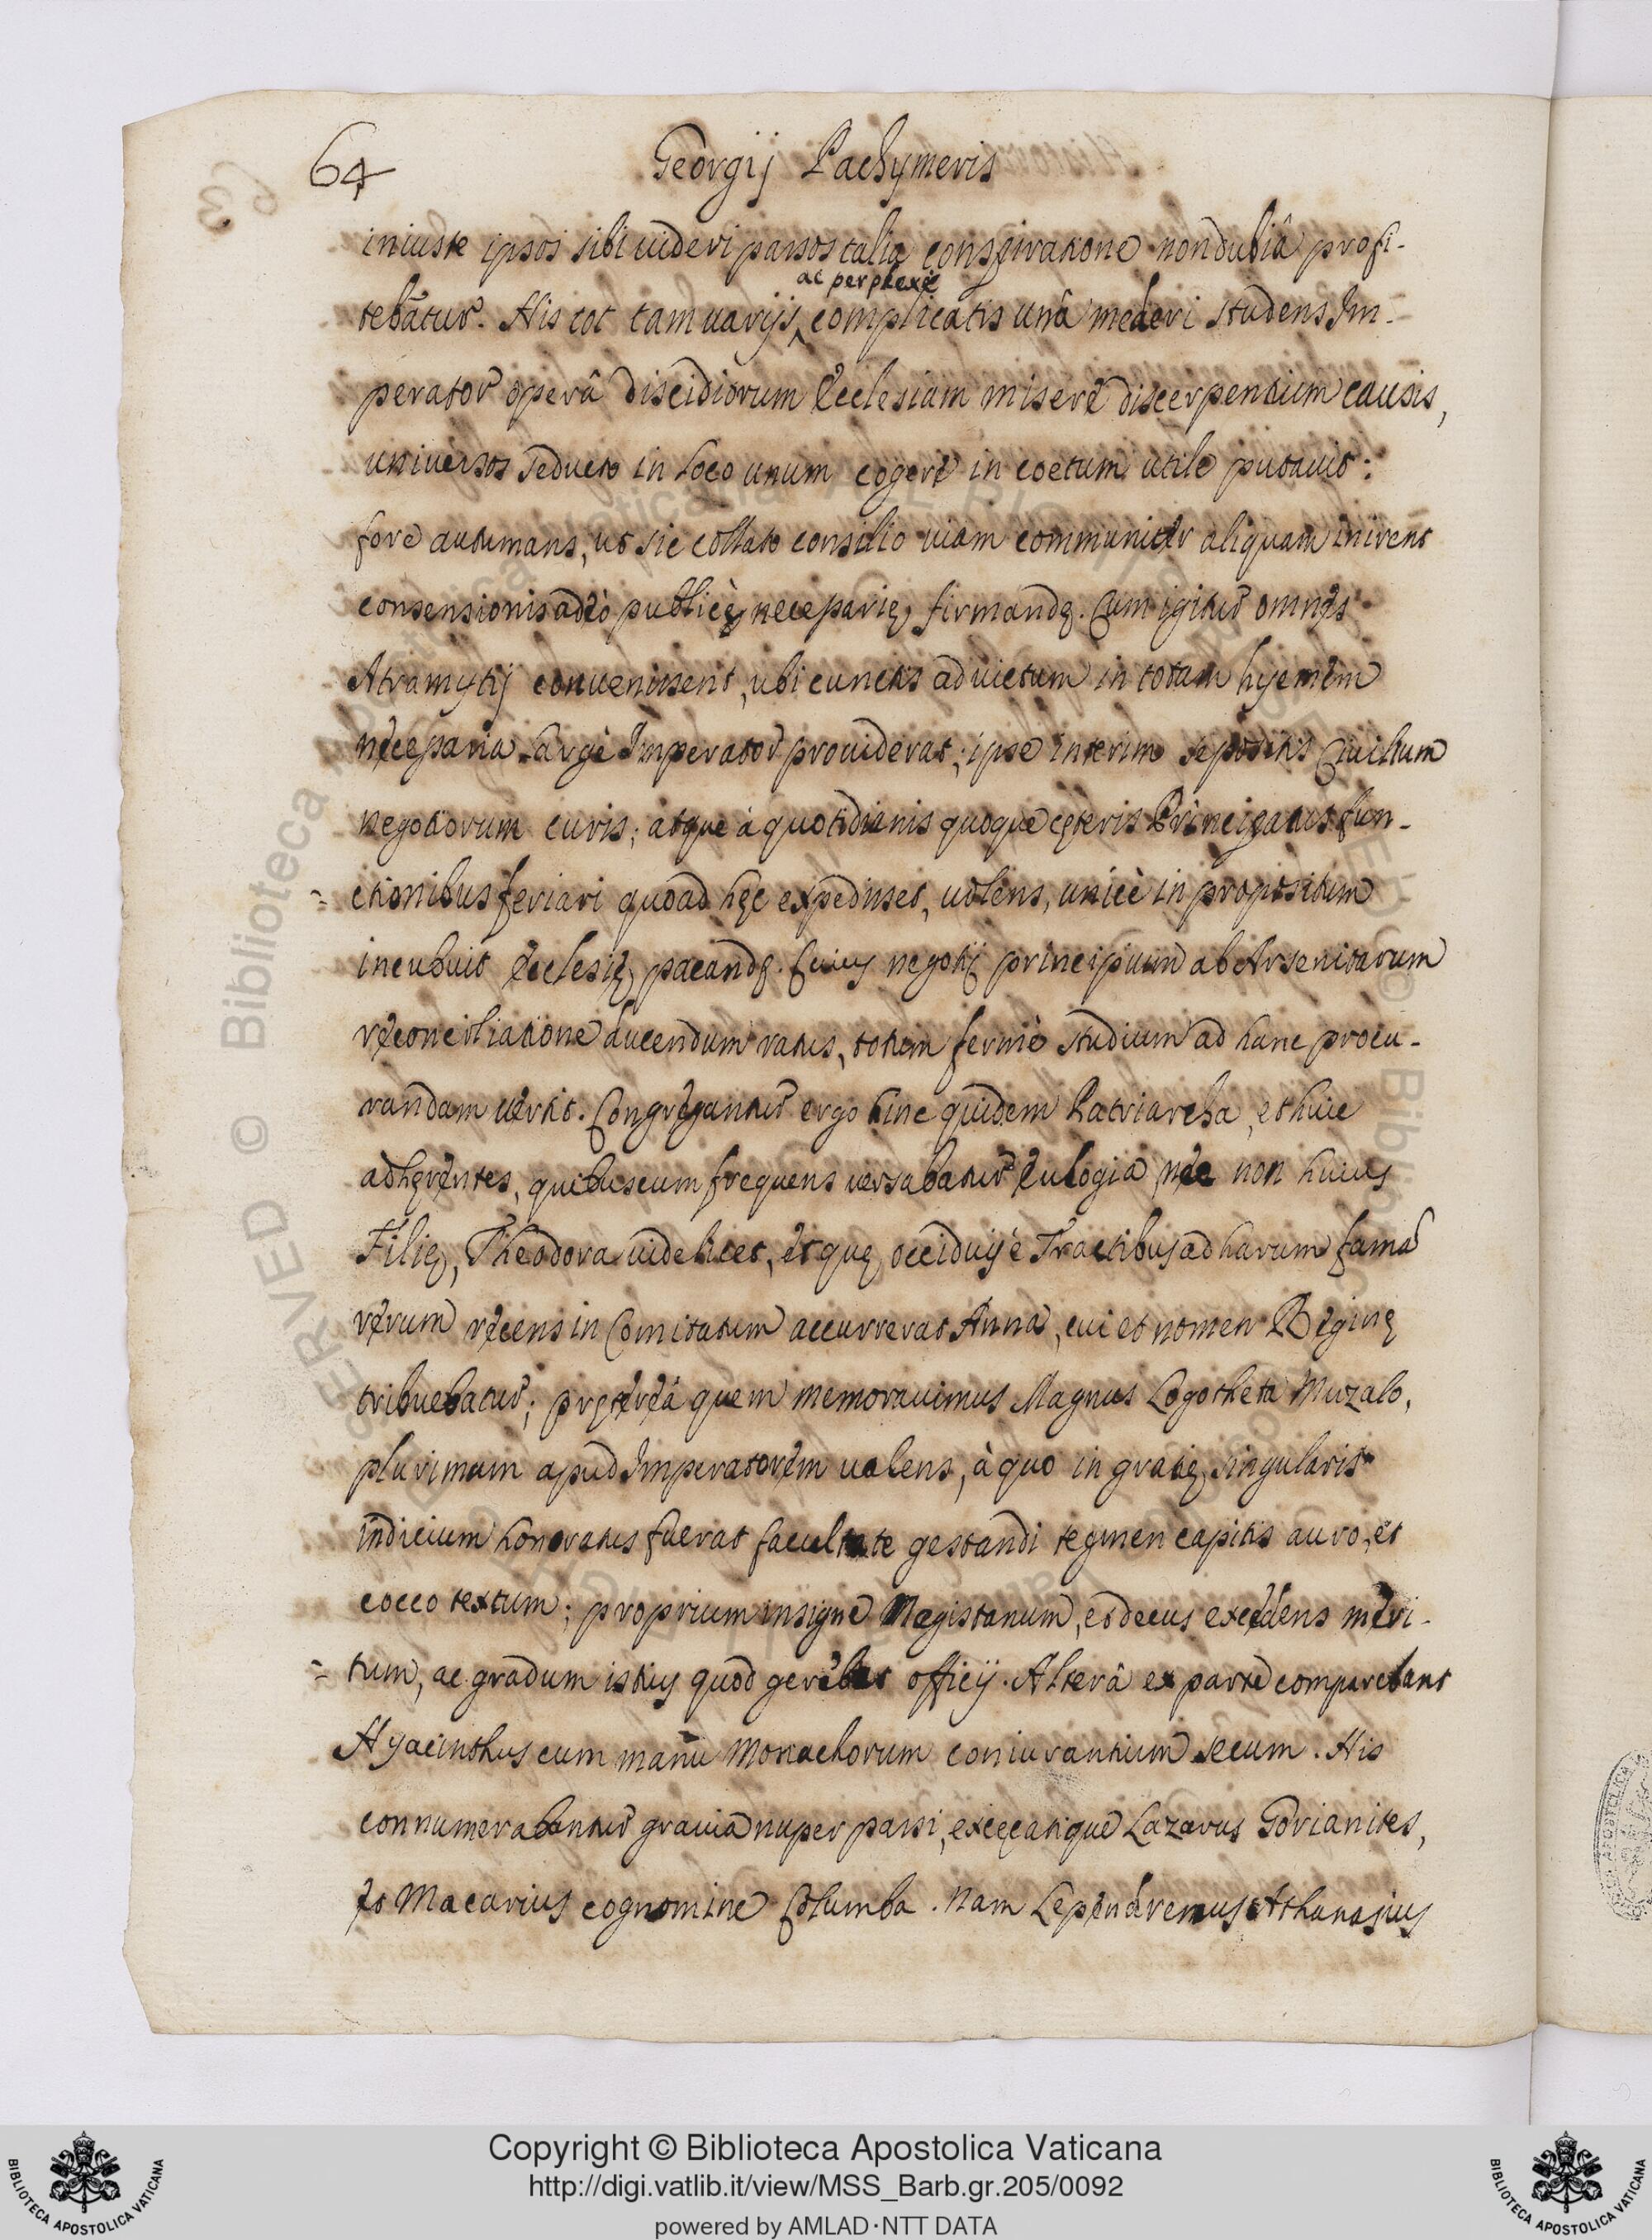 64 Georgij Pachymeris
iniuste ipsos sibi uideri passos talia conspiratione non dubiâ profi-
tebãtur. His tot tam uarijs ac perplexè complicatis unâ mederi studens Im-
perator operâ discidiorum Ecclesiam miserè discerpentium causis,
universos seducto in loco unum cogere in coetum utile putauit:
fore autumans, ut sic collato consilio uiam communiter aliquam inirent
consensionis adeò publicè necessarię firmandę. Cum igitur omnes
Atramytij conuenissent, ubi cunctis ad uictum in totam hyemem
necessaria largè Imperator prouiderat; ipse interim sepositis Ciuilium
negotiorum curis; atque à quotidianis quoque cęteris Principatus fun-
ctionibus feriari quoad hęc expedisset, uolens, unicè in propositum
incubuit Ecclesię pacandę. Cuius negotij principium ab Arsenitarum
reconciliatione ducendum ratus, totum fermè studium ad hanc procu-
randam uertit. Congregantur ergo hinc quidem Patriarcha, et huic
adhęrentes, quibuscum frequens uersabatur Eulogia nec non huius
Filię, Theodora uidelicet, et quę occiduis è Tractibus ad harum fama
rerum recens in Comitatum accurrerat Anna, cui et nomen Reginę
tribuebatur; pręterea quem memorauimus Magnus Logotheta Muzalo,
plurimum apud Imperatorem ualens, à quo in gratię singularis
indicium honoratus fuerat facultate gestandi tegmen capitis auro, et
cocco textum; proprium insigne Magistanum, et decus excedens meri-
tum, ac gradum istius quod gerebat officij. Alterâ ex parte comparebant
Hyacinthus cum manu Monachorum coniurantium secum. His
connumerabantur grauia nuper passi, excęcatique Lazarus Gorianites,
et Macarius cognomine Columba. Nam Lependrenus Athanasius
Copyright © Biblioteca Apostolica Vaticana
http://digi.vatlib.it/view/MSS_Barb.gr.205/0092
powered by AMLAD·NTT DATA
BIBLIOTECA APOSTOLICA VATICANA
BIBLIOTECA APOSTOLICA VATICANA